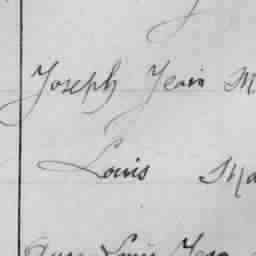 Joseph Jean M
Louis Ma
Louis Jean